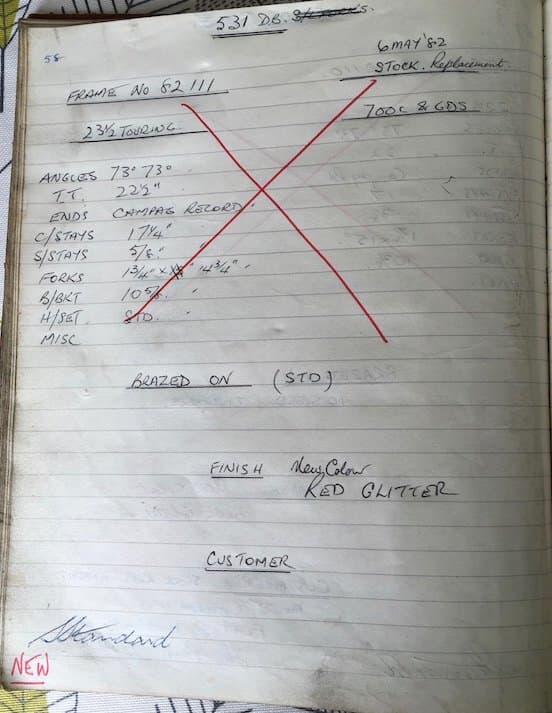 531 D.B.
58
6 MAY '82
STOCK. Replacement
FRAME NO 82111
700C & GDS
23½ TOURING
ANGLES 73° 73°
T.T. 22½"
ENDS CAMPAG RECORD
C/STAYS 17¼"
S/STAYS 5/8"
FORKS 1¾" x 14¾"
B/BKT 10 5/8
H/SET STD
MISC
BRAZED ON (STD)
FINISH New Colour
RED GLITTER
CUSTOMER
Standard
NEW